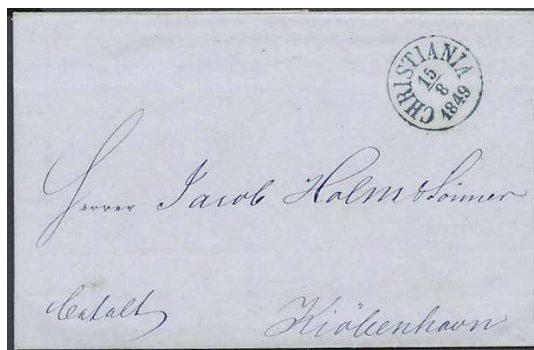 CHRISTIANIA
15/8
1849
Herrer Jacob Holm & Sönner
betalt
Kiöbenhavn